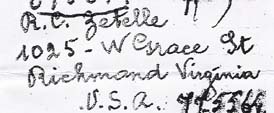 R. C. Zetelle
1025 - W Grace St
Richmand Virginia
U.S.A.